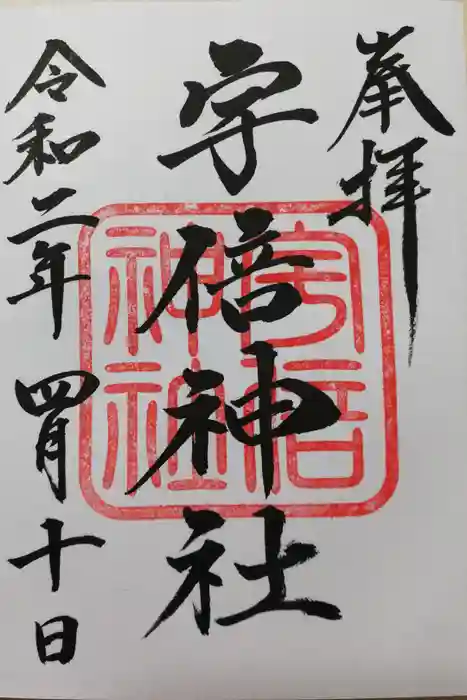 奉拝
宇倍神社
宇倍
神社
令和二年四月十日